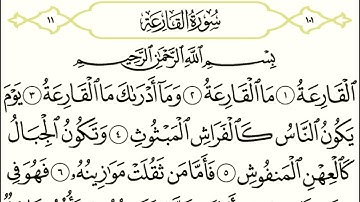 ١٠١ سُورَةُ القَارِعَة ١١
بِسْمِ اللَّهِ الرَّحْمَٰنِ الرَّحِيمِ
ٱلْقَارِعَةُ ١ مَا ٱلْقَارِعَةُ ٢ وَمَآ أَدْرَىٰكَ مَا ٱلْقَارِعَةُ ٣ يَوْمَ
يَكُونُ ٱلنَّاسُ كَٱلْفَرَاشِ ٱلْمَبْثُوثِ ٤ وَتَكُونُ ٱلْجِبَالُ
كَٱلْعِهْنِ ٱلْمَنفُوشِ ٥ فَأَمَّا مَن ثَقُلَتْ مَوَٰزِينُهُۥ ٦ فَهُوَ فِي